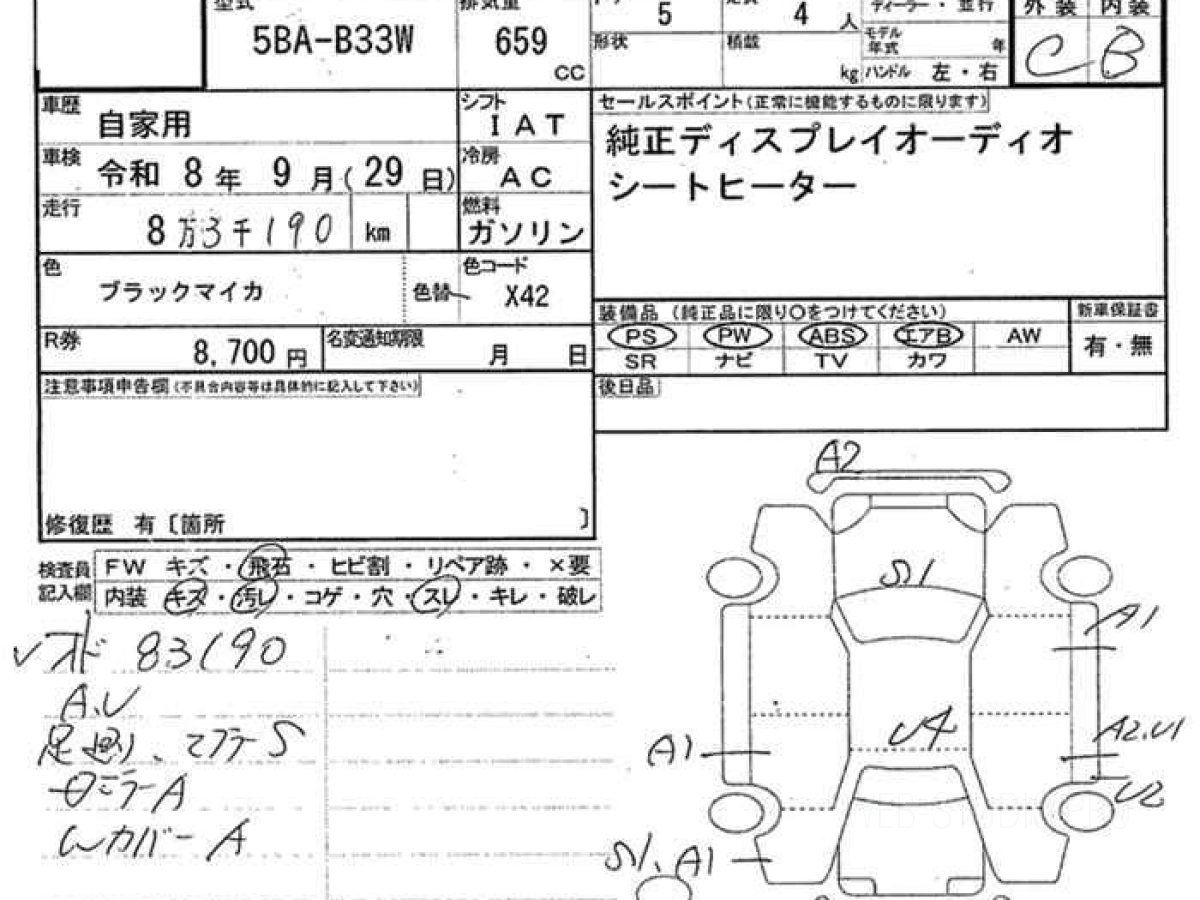 型式 排気量 ドア 5 定員 4 人 ディーラー・並行 外装 内装
5BA-B33W 659 CC 形状 積載 kg モデル年式 年 C B
ハンドル 左・右
車歴 自家用 シフト IAT セールスポイント(正常に機能するものに限ります)
車検 令和 8年 9月(29日) 冷房 AC 純正ディスプレイオーディオ
シートヒーター
走行 8万3千190 km 燃料 ガソリン
色 ブラックマイカ 色替 色コード X42
装備品 (純正品に限り〇をつけてください) 新車保証書
R券 8,700円 名変通知期限 月 日 PS PW ABS エアB AW 有・無
SR ナビ TV カワ
注意事項申告欄(不具合内容等は具体的に記入して下さい) 後日品
A2
修復歴 有〔箇所 〕
検査員 FW キズ・飛石・ヒビ割・リペア跡・×要
記入欄 内装 キズ・汚レ・コゲ・穴・スレ・キレ・破レ
S1
A1
オド 83190
A.U
U4
足廻り、マフラーS
A2.U1
A1
U2
ミラーA
Wカバー A
S1、A1